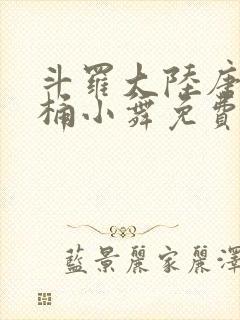 斗羅大陸唐
桶小舞免費
藍景麗家麗澤